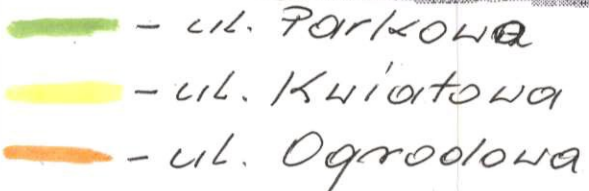 - ul. Parkowa
- ul. Kwiatowa
- ul. Ogrodowa